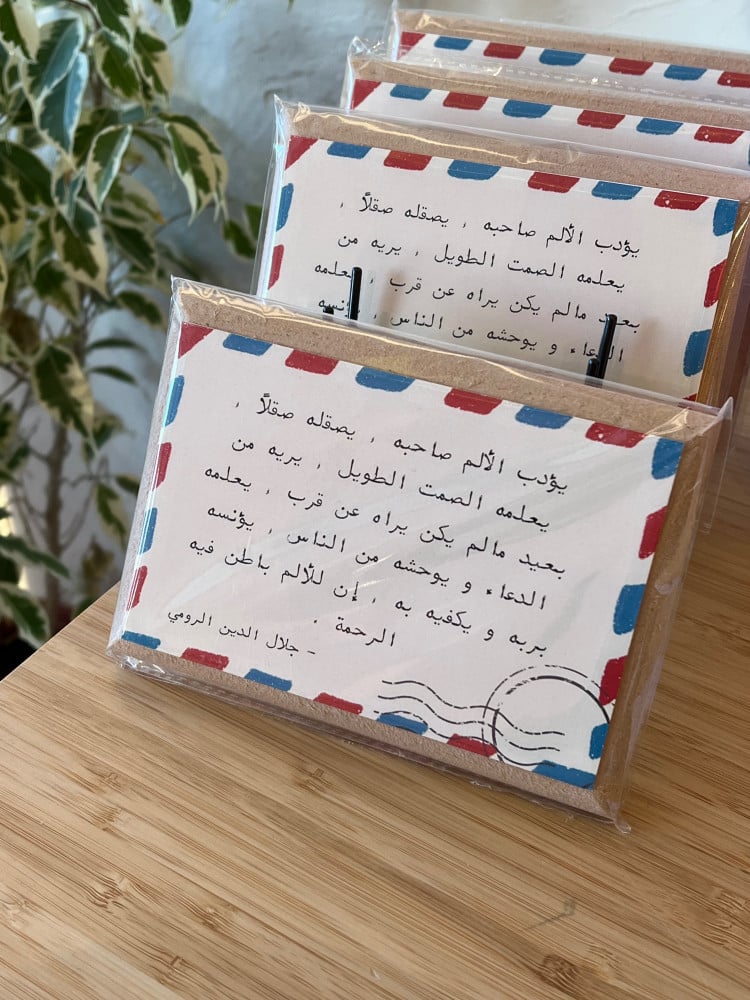 يؤدب الألم صاحبه , يصقله صقلاً ,
يعلمه الصمت الطويل , يريه من
بعيد مالم يكن يراه عن قرب , يعلمه
و يوحشه من الناس
يؤدب الألم صاحبه , يصقله صقلاً ,
يعلمه الصمت الطويل , يريه من
بعيد مالم يكن يراه عن قرب , يعلمه
الدعاء و يوحشه من الناس , يؤنسه
بربه و يكفيه به , إن للألم باطن فيه
الرحمة .
- جلال الدين الرومي